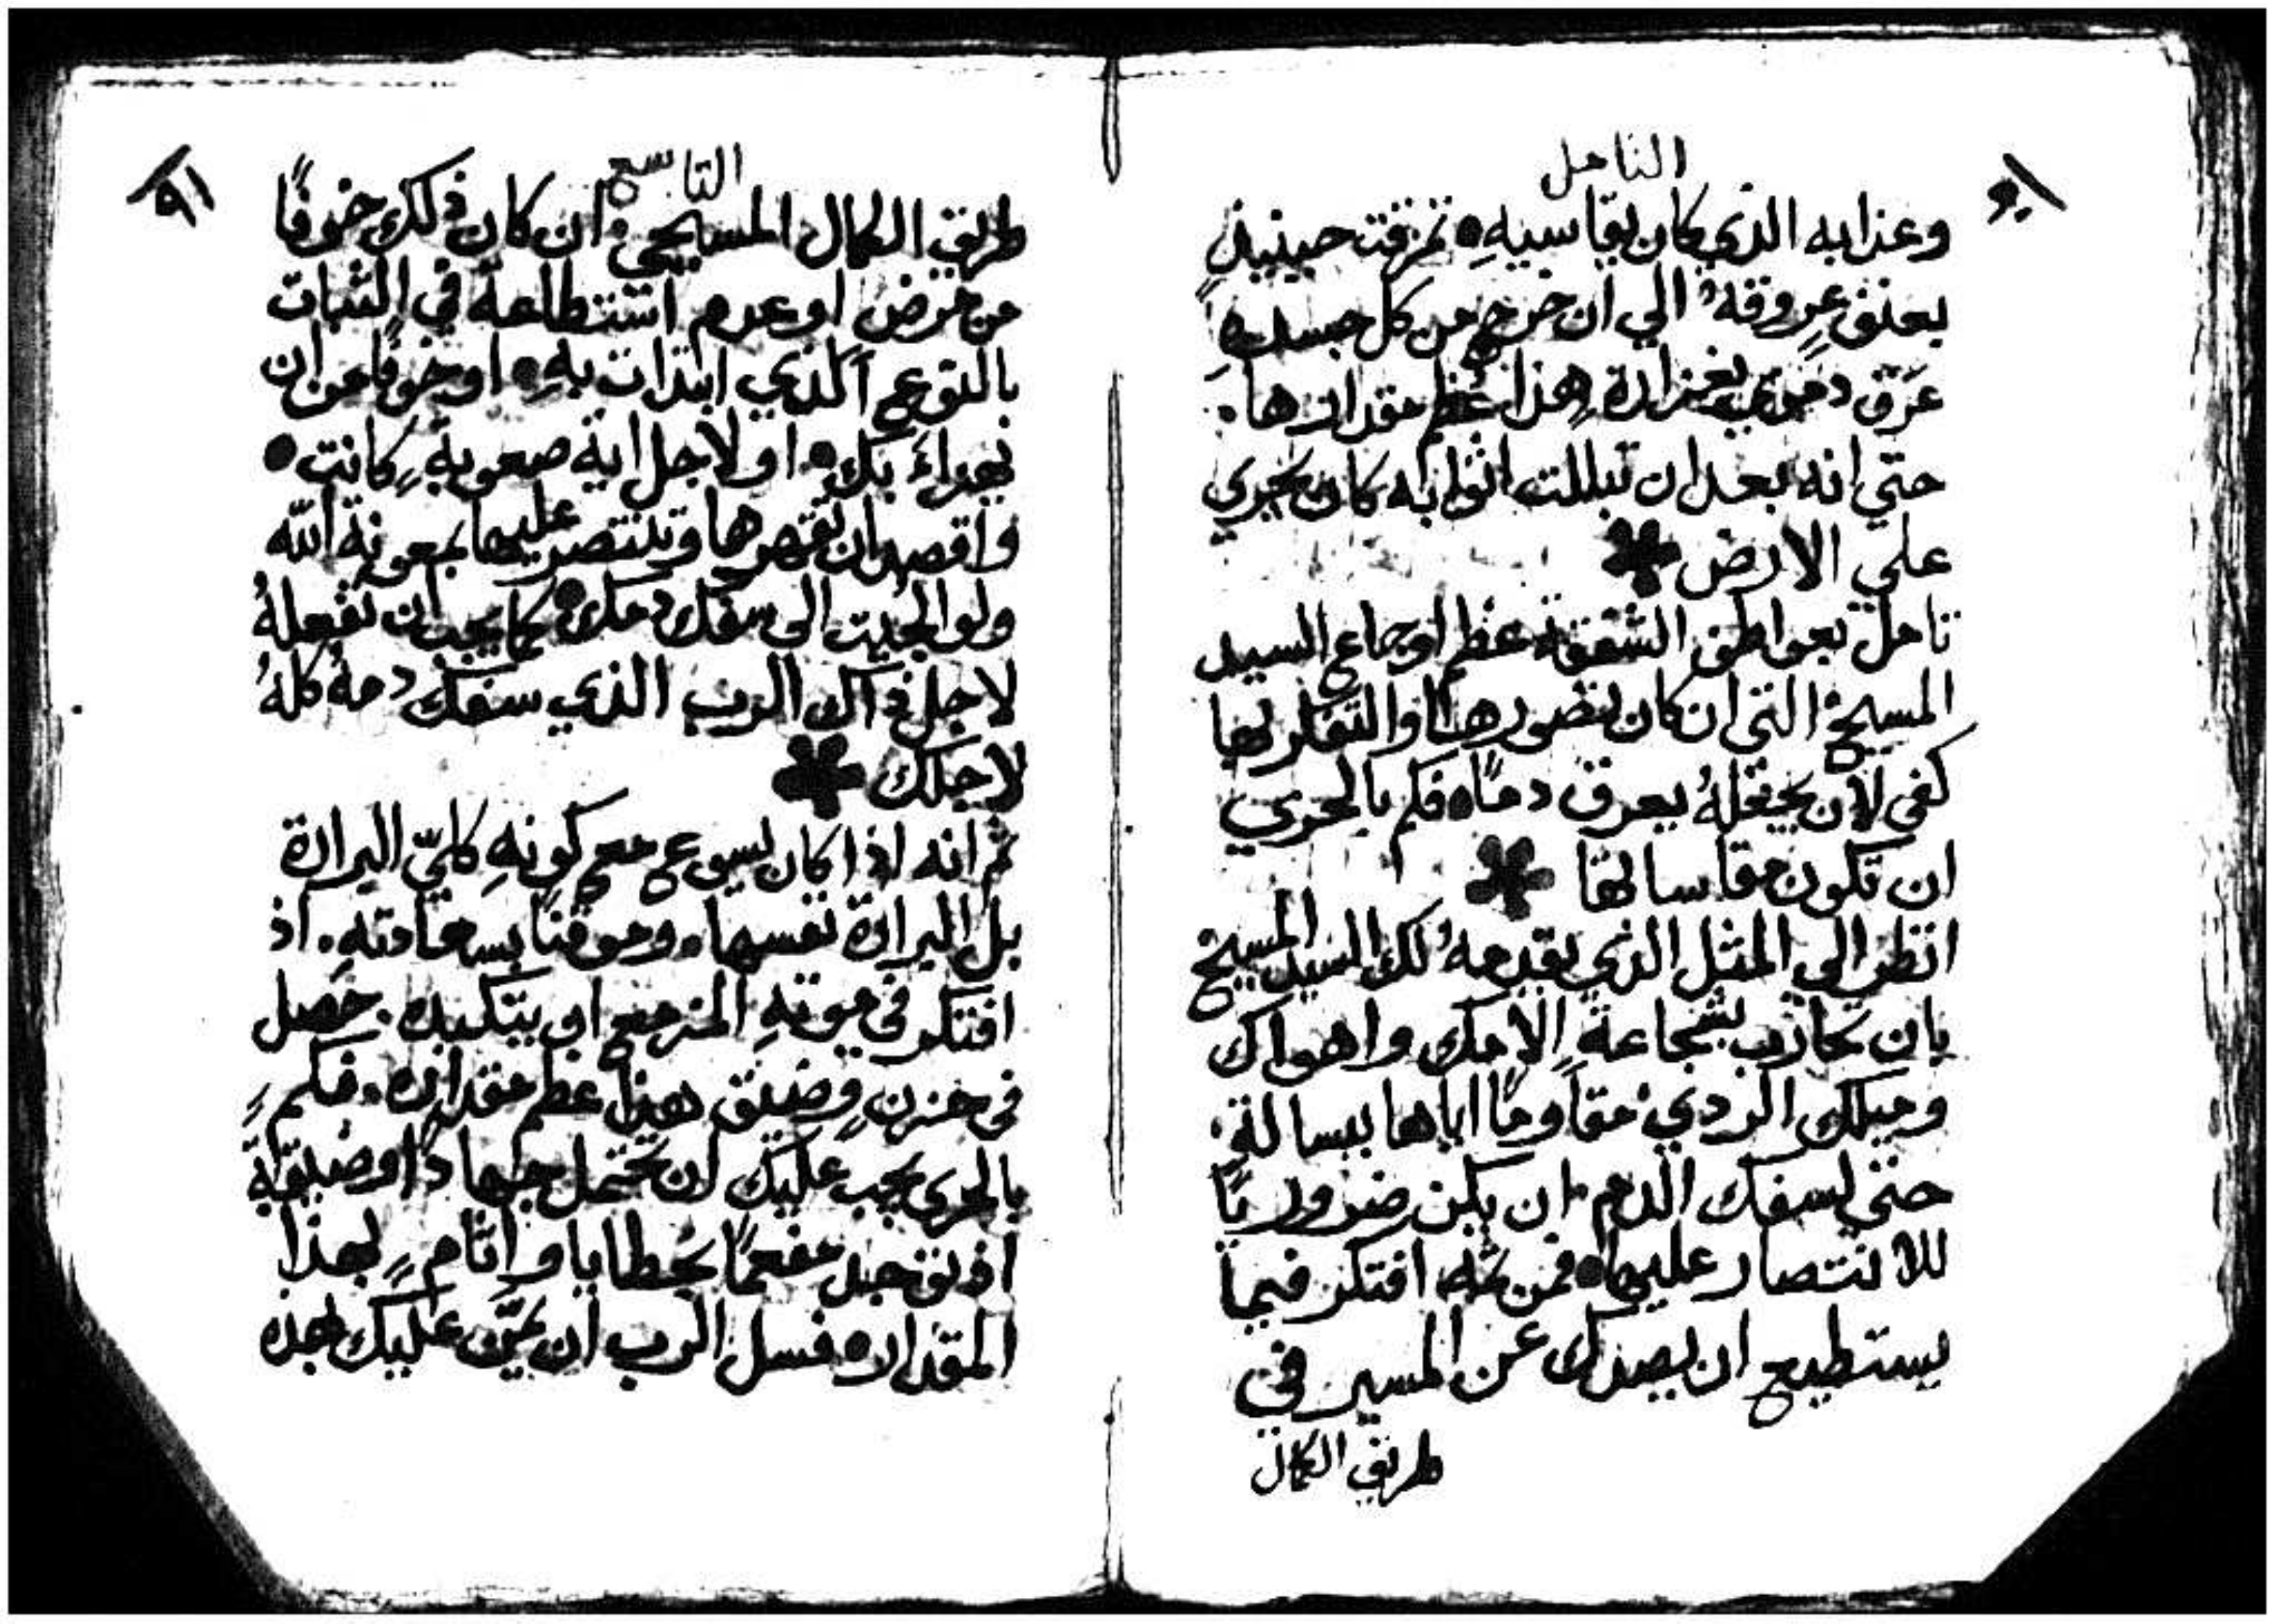 التامل
وعذابه الذي كان يقاسيهِ • تمزقت حينيذٍ
بعنف عروقهُ الي ان خرج من كل جسدهِ
عَرَق دموي بغزارة هذا عظم مقدارها.
حتي انه بعد ان تبللت اثوابه كان يجري
علي الارض
تامل بعواطف الشفقة عظم اوجاع السيد
المسيح التي ان كان تصورها والتفكر بها
كفى لان يجعلهُ يعرق دمًا • فكم بالحري
ان تكون مقاساتها
انظر الي المثل الذي يقدمهُ لك السيد المسيح
بان تحارب بشجاعةٍ الامك واهواك
وميلك الردي مقاومًا اياها ببسالةٍ
حتي لسفك الدم ان يكن ضروريًا
للانتصار عليها • فمن ثم افتكر فيما
يستطيع ان يصدك عن المسير في
طريق الكمال
التاسع
٩١
طريق الكمال المسيحي ان كان ذلك خوفًا
من مرض او عدم استطاعة في الثبات
بالنوع الذي ابتدات بهِ • او خوفًا من ان
يهزاء بك • او لاجل اية صعوبةٍ كانت •
واقصد ان تقهرها وتنتصر عليها بمعونة الله
ولو الجيت الى سفك دمك • كما يجب ان تفعلهُ
لاجل ذاك الرب الذي سفك دمهُ كلهُ
لاجلك
ثم انه اذا كان يسوع مع كونهِ كليّ البرارة
بل البرارة نفسها. وموقنًا بسعادتهِ. اذ
افتكر في موتهِ المزمع ان يتكبده. حصل
في حزنٍ وضيق هذا عظم مقداره. فكم
بالحري يجب عليك ان تحتمل جهادًا وضيقةً
اذ توجد مفعمًا بخطايا واثامٍ بهذا
المقدار • فسل الرب ان يمنّ عليك بهذه